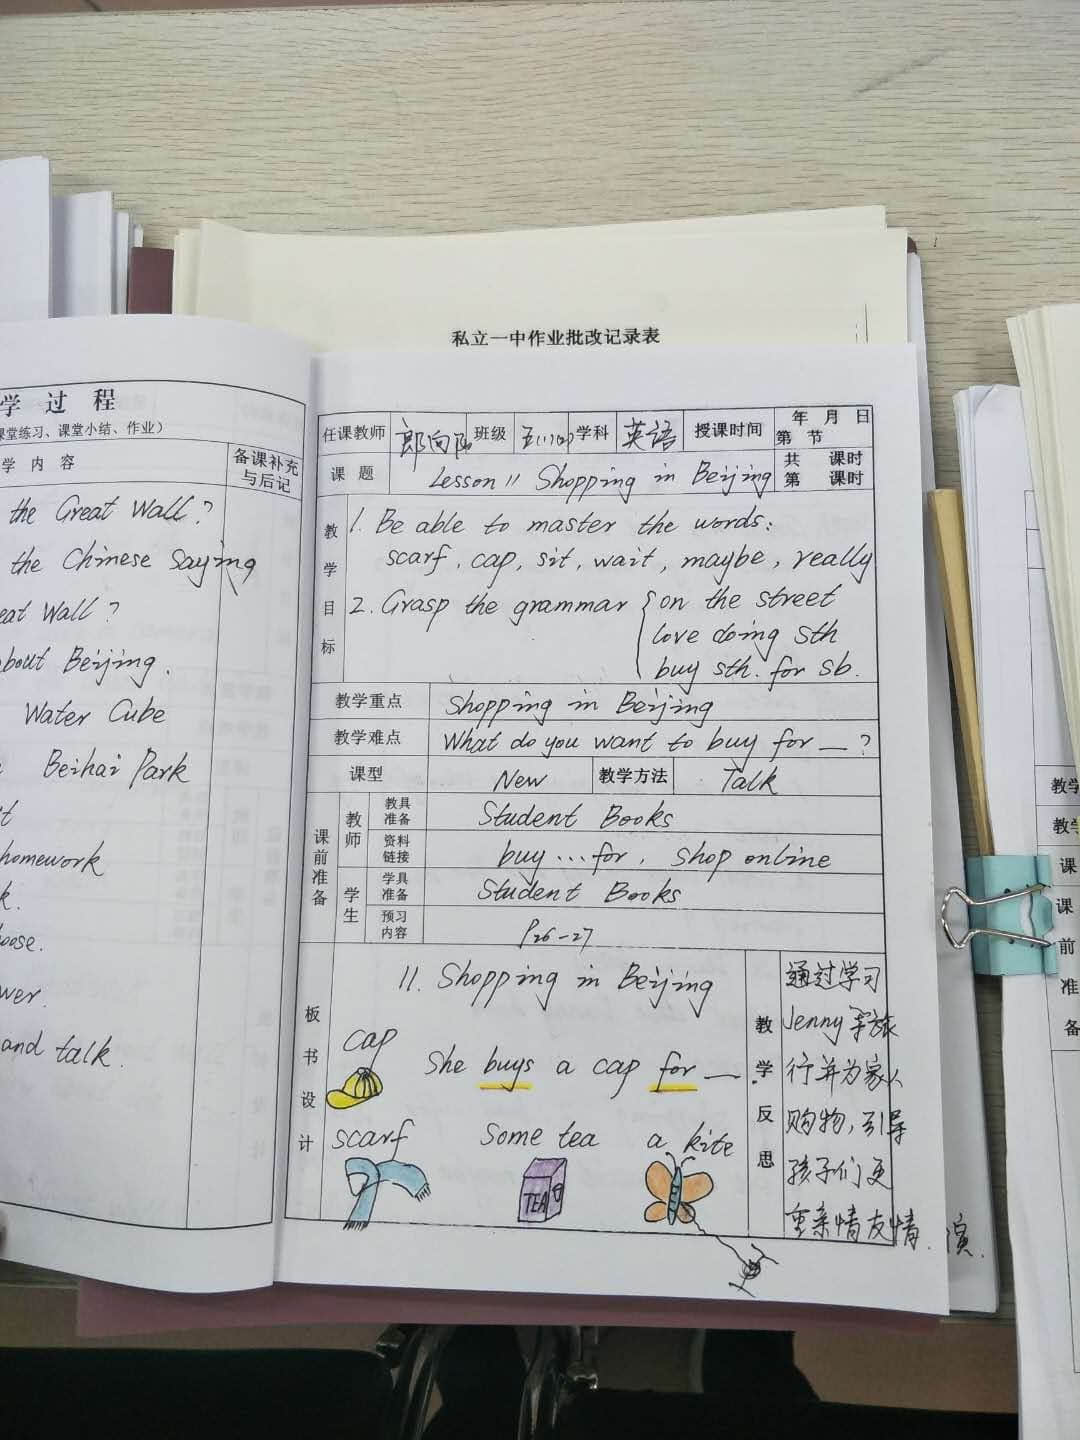 私立一中作业批改记录表
学 过 程
课堂练习、课堂小结、作业）
学 内 容
备课补充
与后记
the Great Wall?
the Chinese Saying
eat Wall?
about Beijing.
Water Cube
Beihai Park
homework
k.
oose.
wer.
and talk.
任课教师 郎向阳 班级 五(1)(2) 学科 英语 授课时间 年 月 日
第 节
课 题 Lesson 11 Shopping in Beijing
共 课时
第 课时
教学目标
1. Be able to master the words:
scarf, cap, sit, wait, maybe, really
2. Grasp the grammar { on the street
love doing sth
buy sth. for sb.
教学重点 Shopping in Beijing
教学难点 What do you want to buy for __?
课型 New 教学方法 Talk
课前准备
教师
教具准备 Student Books
资料链接 buy...for, shop online
学生
学具准备 Student Books
预习内容 P26-27
板书设计
11. Shopping in Beijing
cap
She buys a cap for __.
scarf some tea a kite
TEA
教学反思
通过学习
Jenny 等旅
行并为家人
购物,引导
孩子们更
重亲情友情.
教学
教学
课
课
前
准
备